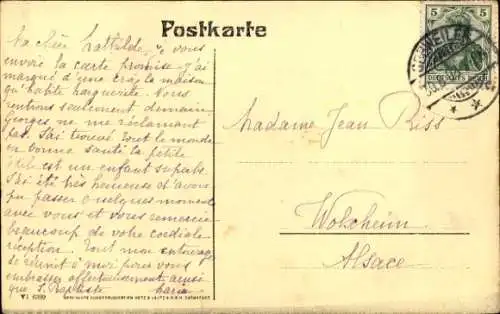 Postkarte
Ma chère Mathilde, je vous
envoie la carte promise. J'ai
marqué d'une croix la maison
qu'habite Marguerite. Nous
rentrons seulement demain
Georges ne me réclamant
pas. J'ai trouvé tout le monde
en bonne santé la petite
est un enfant superbe.
J'ai été très heureuse d'avoir
pu passer quelques moments
avec vous et vous remercie
beaucoup de votre cordiale
réception. Tout mon entourage
se réunit à moi pour vous
embrasser affectueusement ainsi
que J. Baptiste Maria
5 5
DEUTSCHES REICH
GEBWEILER
Madame Jean Riss
Wolxheim
Alsace